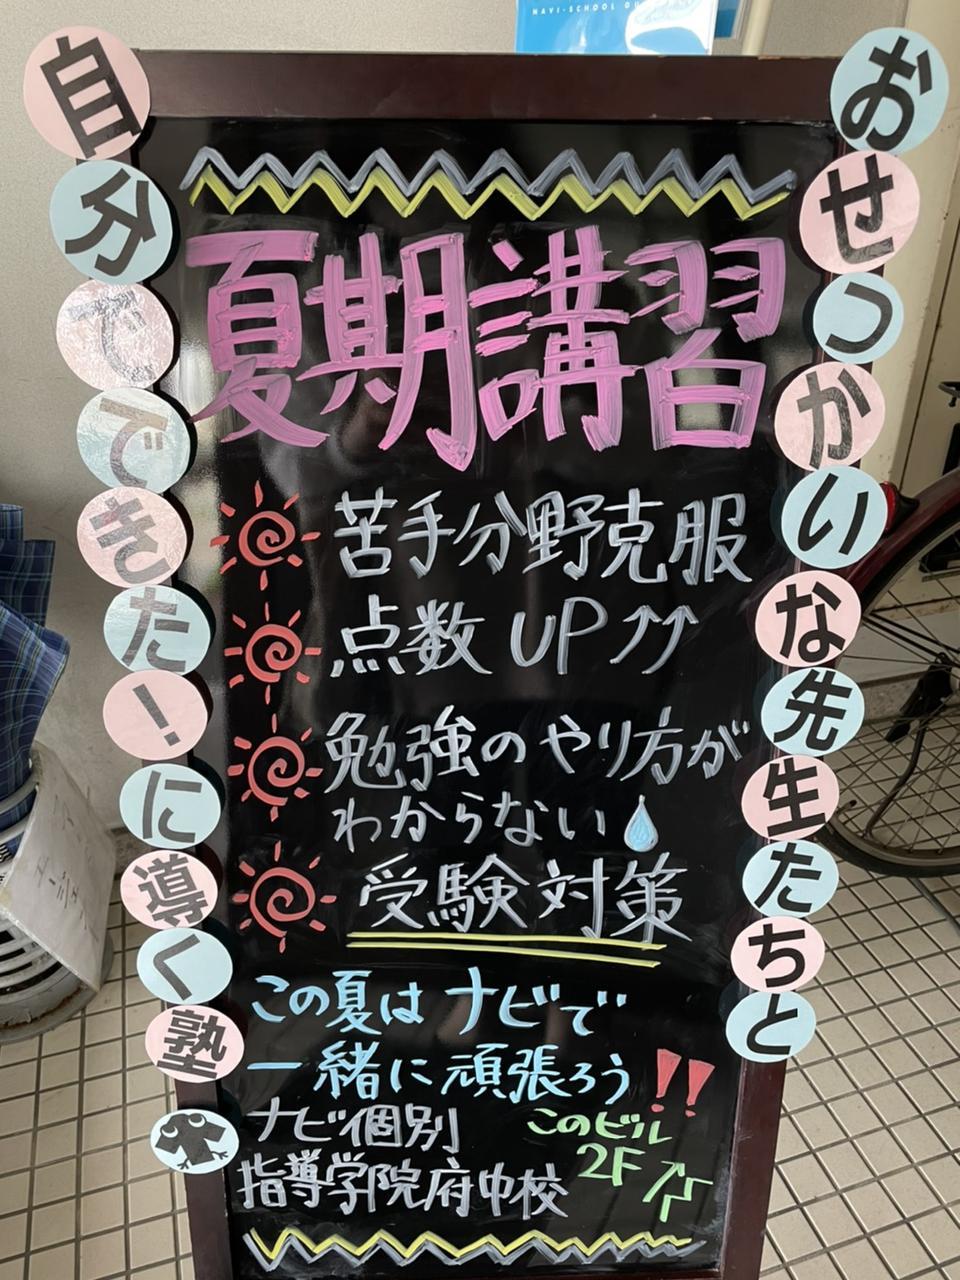 NAVI-SCHOOL
おせっかいな先生たちと
自分でできた！に導く塾
夏期講習
苦手分野克服
点数 UP↑↑
勉強のやり方が
わからない
受験対策
この夏はナビで
一緒に頑張ろう!!
ナビ個別
指導学院府中校
このビル
2F